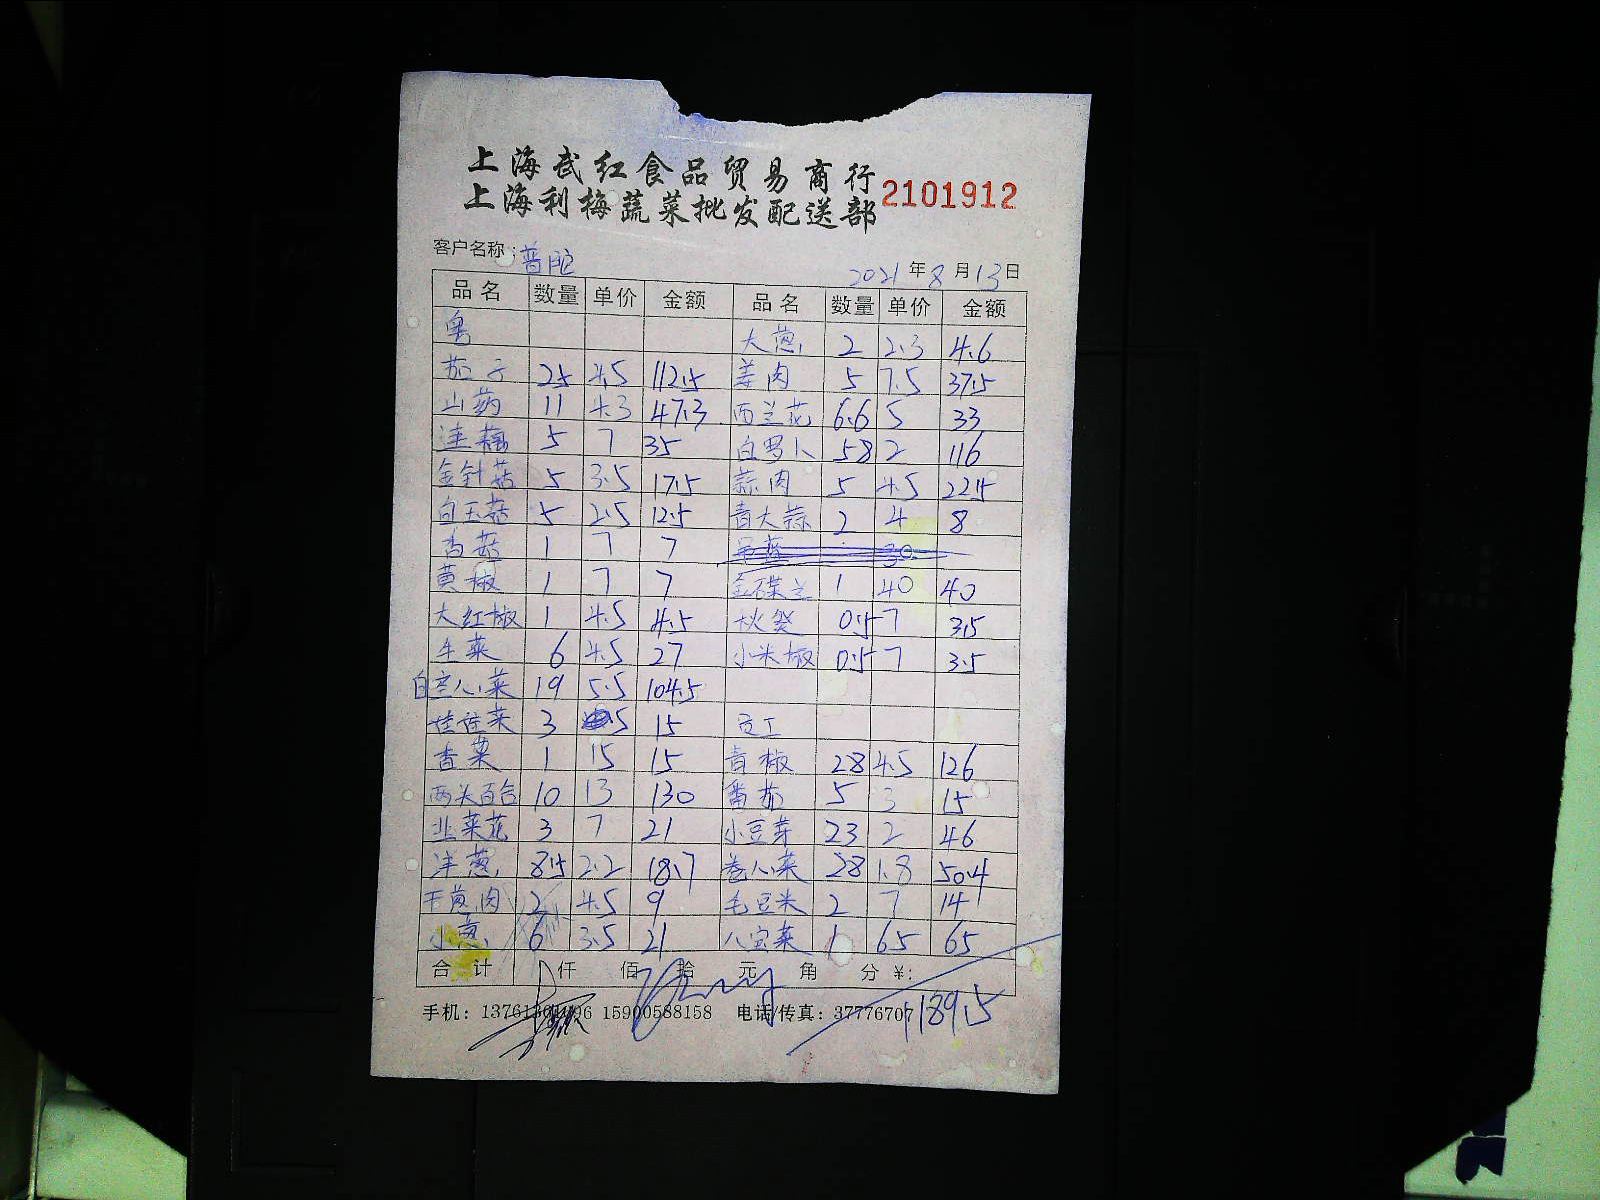 上海武红食品贸易商行
上海利梅蔬菜批发配送部 2101912
客户名称：普陀 2021年8月13日
品名 数量 单价 金额 品名 数量 单价 金额
粤 大葱 2 2.3 4.6
茄子 25 4.5 112.5 姜肉 5 7.5 37.5
山药 11 4.3 47.3 西兰花 6.6 5 33
连藕 5 7 35 白罗卜 58 2 116
金针菇 5 3.5 17.5 蒜肉 5 4.5 22.5
白玉菇 5 2.5 12.5 青大蒜 2 4 8
香菇 1 7 7 30
黄椒 1 7 7 金碟兰 1 40 40
大红椒 1 4.5 4.5 秋葵 0.5 7 3.5
生菜 6 4.5 27 小米椒 0.5 7 3.5
白空心菜 19 5.5 104.5
娃娃菜 3 5 15 员工
香菜 1 15 15 青椒 28 4.5 126
两头百合 10 13 130 番茄 5 3 15
韭菜花 3 7 21 小豆芽 23 2 46
洋葱 8.5 2.2 18.7 卷心菜 28 1.8 50.4
干葱肉 2 4.5 9 毛豆米 2 7 14
小葱 6 3.5 21 八宝菜 1 65 65
合计 仟 佰 拾 元 角 分 ¥:
手机：13761301496 15900588158 电话/传真：37776707 1189.5